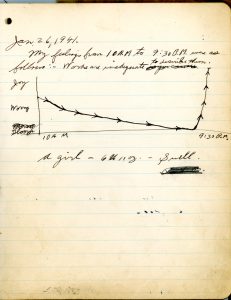 Jan 26, 1941.
My feelings from 10 A.M. to 9:30 P.M. were as
follows:- Words are inadequate to describe them.
Joy
Worry
10 A M
9:30 P.M.
A girl - 6 lb 11 oz. - Swell.